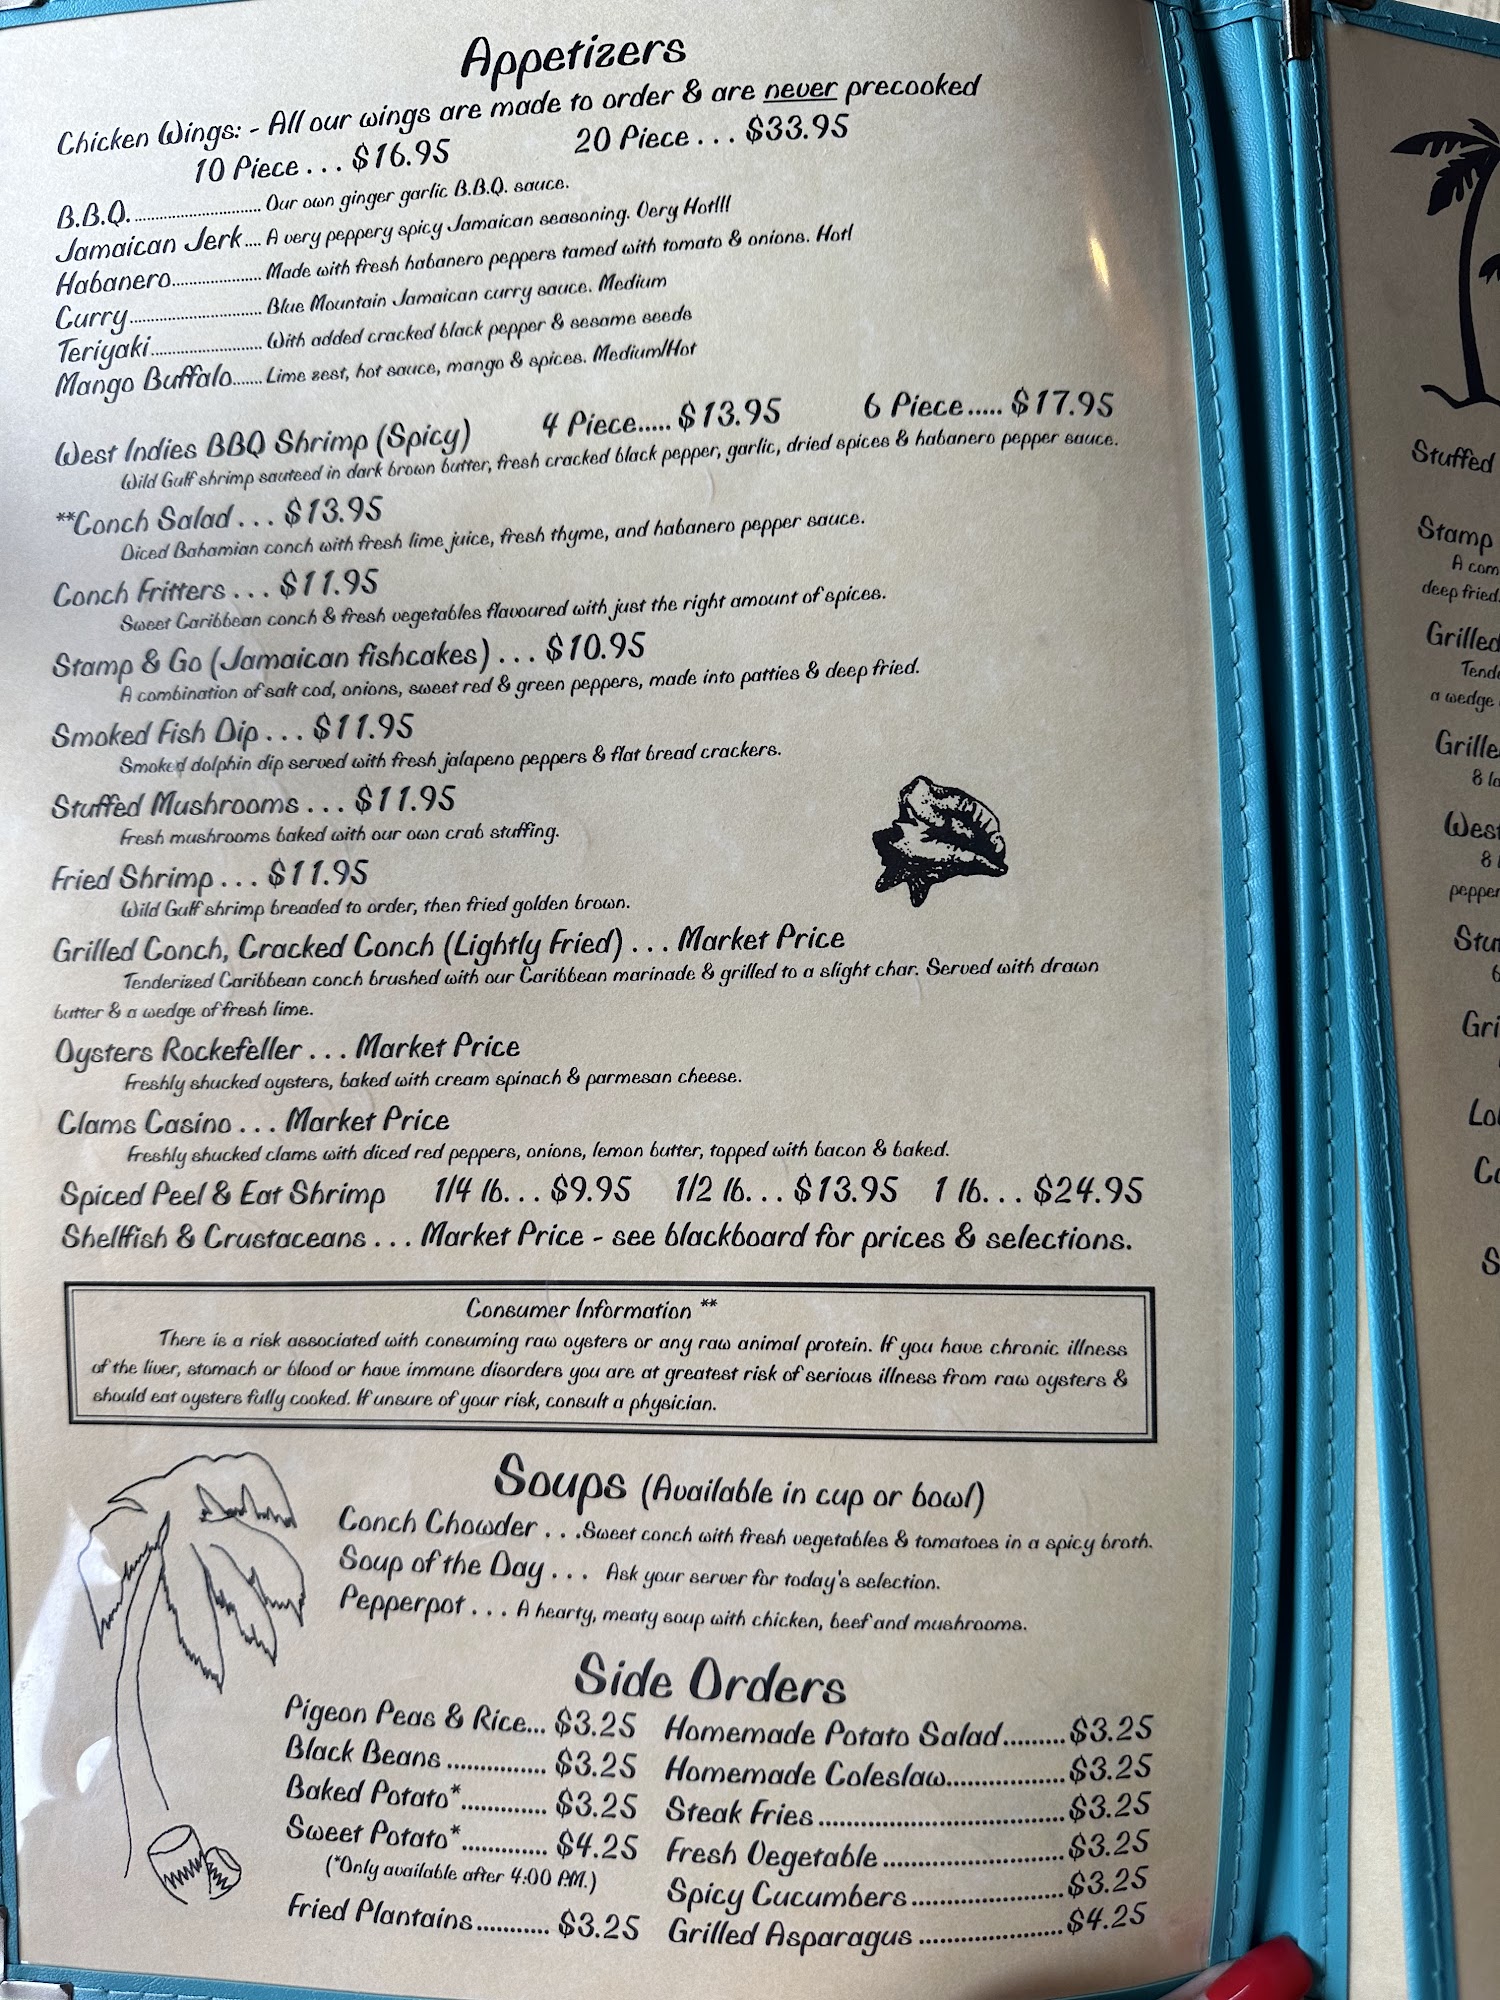 Appetizers
Chicken Wings: - All our wings are made to order & are never precooked
10 Piece . . . $16.95 20 Piece . . . $33.95
B.B.Q. .............................. Our own ginger garlic B.B.Q. sauce.
Jamaican Jerk .... A very peppery spicy Jamaican seasoning. Very Hot!!!
Habanero..................... Made with fresh habanero peppers tamed with tomato & onions. Hot!
Curry............................... Blue Mountain Jamaican curry sauce. Medium
Teriyaki.......................... With added cracked black pepper & sesame seeds
Mango Buffalo....... Lime zest, hot sauce, mango & spices. Medium/Hot
West Indies BBQ Shrimp (Spicy) 4 Piece..... $13.95 6 Piece..... $17.95
Wild Gulf shrimp sauteed in dark brown butter, fresh cracked black pepper, garlic, dried spices & habanero pepper sauce.
**Conch Salad . . . $13.95
Diced Bahamian conch with fresh lime juice, fresh thyme, and habanero pepper sauce.
Conch Fritters . . . $11.95
Sweet Caribbean conch & fresh vegetables flavoured with just the right amount of spices.
Stamp & Go (Jamaican fishcakes) . . . $10.95
A combination of salt cod, onions, sweet red & green peppers, made into patties & deep fried.
Smoked Fish Dip . . . $11.95
Smoked dolphin dip served with fresh jalapeno peppers & flat bread crackers.
Stuffed Mushrooms . . . $11.95
Fresh mushrooms baked with our own crab stuffing.
Fried Shrimp . . . $11.95
Wild Gulf shrimp breaded to order, then fried golden brown.
Grilled Conch, Cracked Conch (Lightly Fried) . . . Market Price
Tenderized Caribbean conch brushed with our Caribbean marinade & grilled to a slight char. Served with drawn
butter & a wedge of fresh lime.
Oysters Rockefeller . . . Market Price
Freshly shucked oysters, baked with cream spinach & parmesan cheese.
Clams Casino . . . Market Price
Freshly shucked clams with diced red peppers, onions, lemon butter, topped with bacon & baked.
Spiced Peel & Eat Shrimp 1/4 lb. . . $9.95 1/2 lb. . . $13.95 1 lb. . . $24.95
Shellfish & Crustaceans . . . Market Price - see blackboard for prices & selections.
Consumer Information **
There is a risk associated with consuming raw oysters or any raw animal protein. If you have chronic illness
of the liver, stomach or blood or have immune disorders you are at greatest risk of serious illness from raw oysters &
should eat oysters fully cooked. If unsure of your risk, consult a physician.
Soups (Available in cup or bowl)
Conch Chowder . . .Sweet conch with fresh vegetables & tomatoes in a spicy broth.
Soup of the Day . . . Ask your server for today's selection.
Pepperpot . . . A hearty, meaty soup with chicken, beef and mushrooms.
Side Orders
Pigeon Peas & Rice... $3.25 Homemade Potato Salad.........$3.25
Black Beans ............... $3.25 Homemade Coleslaw.................$3.25
Baked Potato*............. $3.25 Steak Fries ...................................$3.25
Sweet Potato*............. $4.25 Fresh Vegetable ..........................$3.25
(*Only available after 4:00 P.M.) Spicy Cucumbers ......................$3.25
Fried Plantains........... $3.25 Grilled Asparagus .....................$4.25
Stuffed
Stamp
A com
deep fried.
Grilled
Tende
a wedge
Grille
8 la
West
8
pepper
Stu
6
Gri
Lo
Co
S